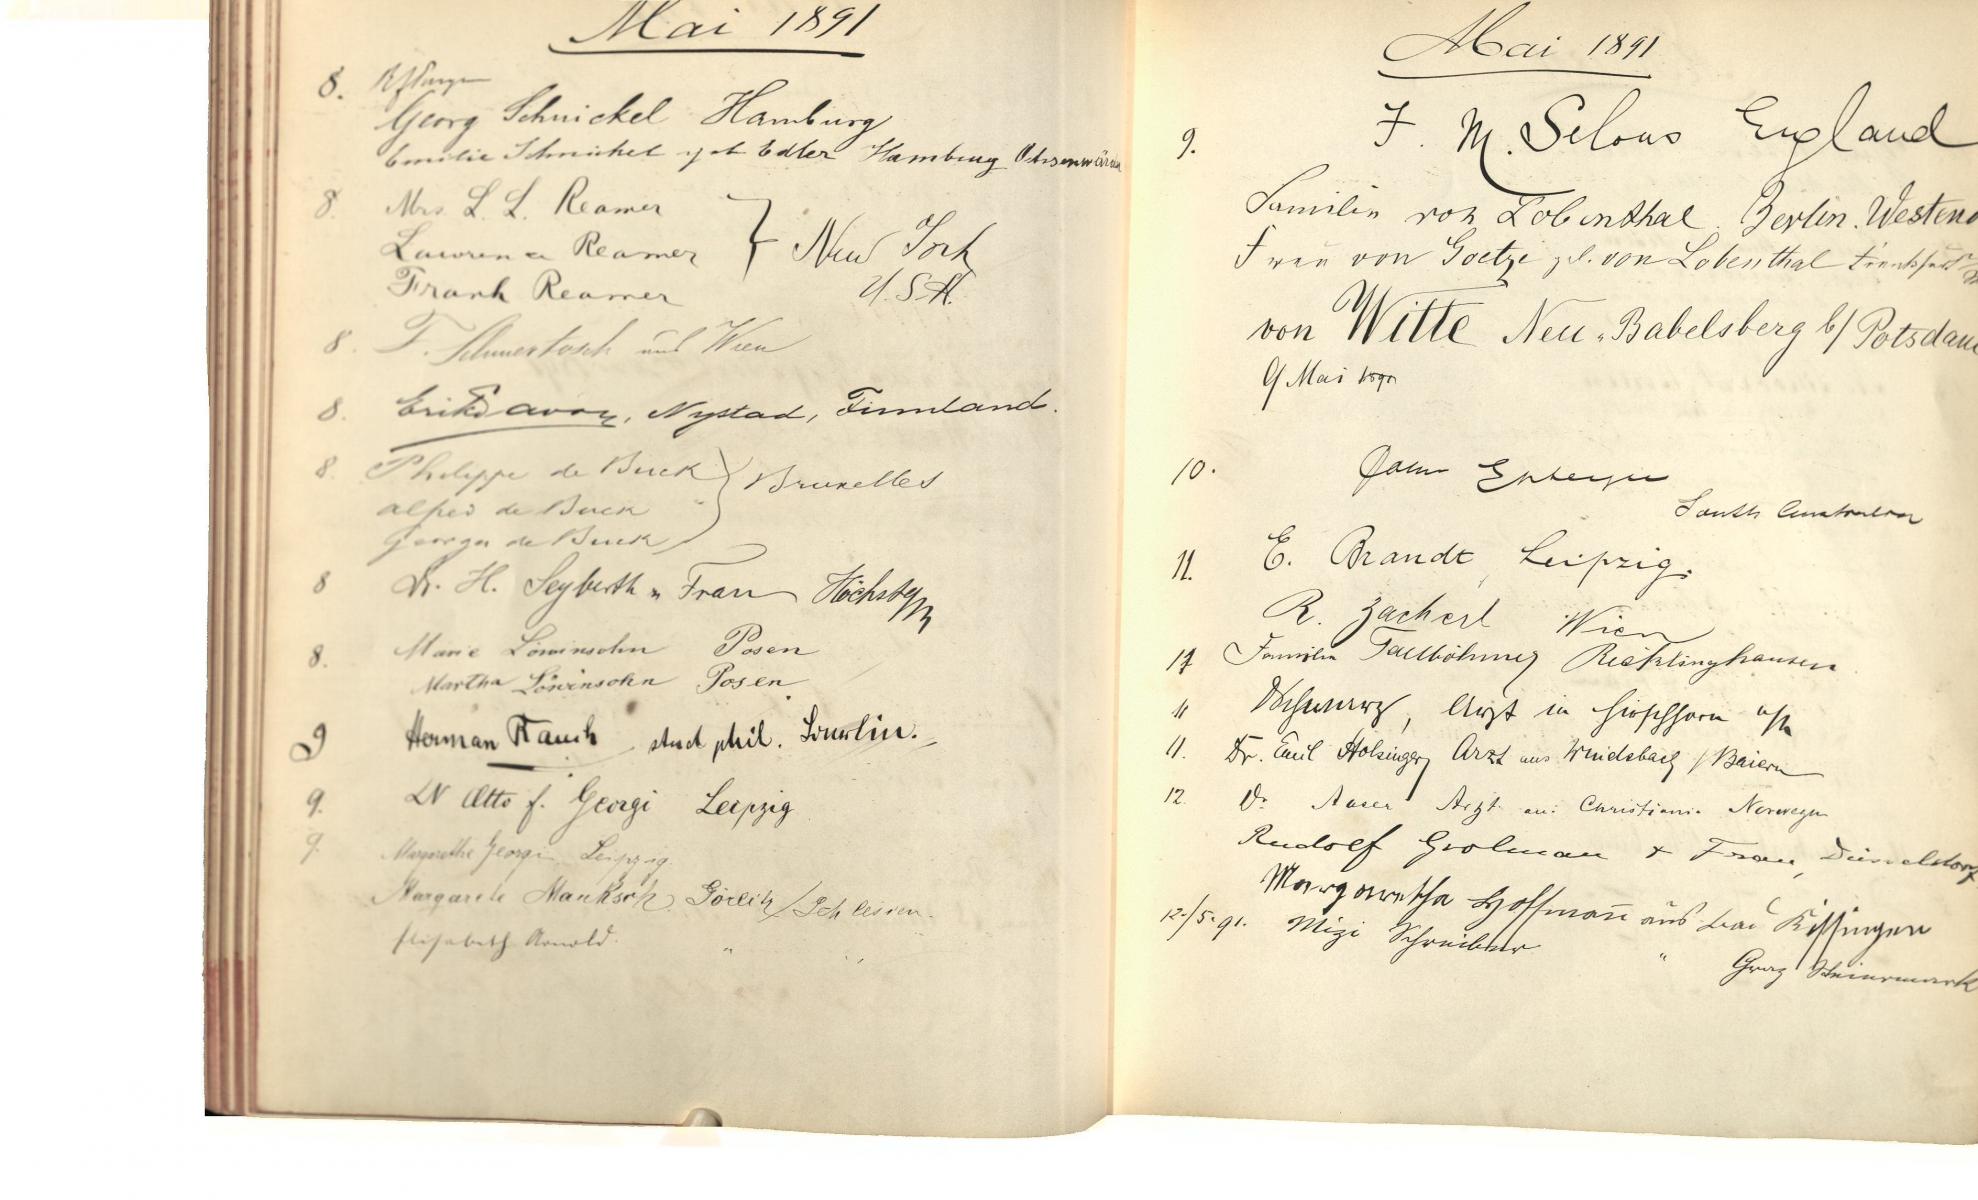 Mai 1891
8.
Georg Schnickel Hamburg
Emilie Schnickel geb Edler Hamburg
8. Mrs. L. L. Reamer
Lawrence Reamer } New York
Frank Reamer U.S.A.
8. F. und Wien
8. Erik Savon, Nystad, Finnland.
8. Philippe de Buck } Bruxelles
Alfred de Buck
Georges de Buck
8 Dr. H. Seyberth u Frau Höchst a/M
8. Marie Löwinsohn Posen
Martha Löwinsohn Posen
9 Herman Rauch stud phil.
9. Dr Otto Georgi Leipzig
9. Margarethe Georgi Leipzig
Margarete Mauksch Görlitz / Schlesien.
Elisabeth Arnold. " "
Mai 1891
9. F. M. Selous England
Familie von Lobenthal. Berlin. Westend
Frau von Goetze geb. von Lobenthal Frankfurt
von Witte Neu-Babelsberg b/ Potsdam
9 Mai 1891
10.
South Australia
11. E. Brandt, Leipzig.
R. Zacherl Wien
Familie Recklinghausen
11 Schwarz, Arzt in Hirschhorn a/N
11. Dr. Emil Holzinger Arzt aus Windsbach / Baiern
12. Dr. Arzt aus Christiania Norwegen
Rudolf Grolman & Frau, Düsseldorf
Margaretha Hoffmann aus Bad Kissingen
12./5. 91. Mizi Schreiber " Graz Steiermark